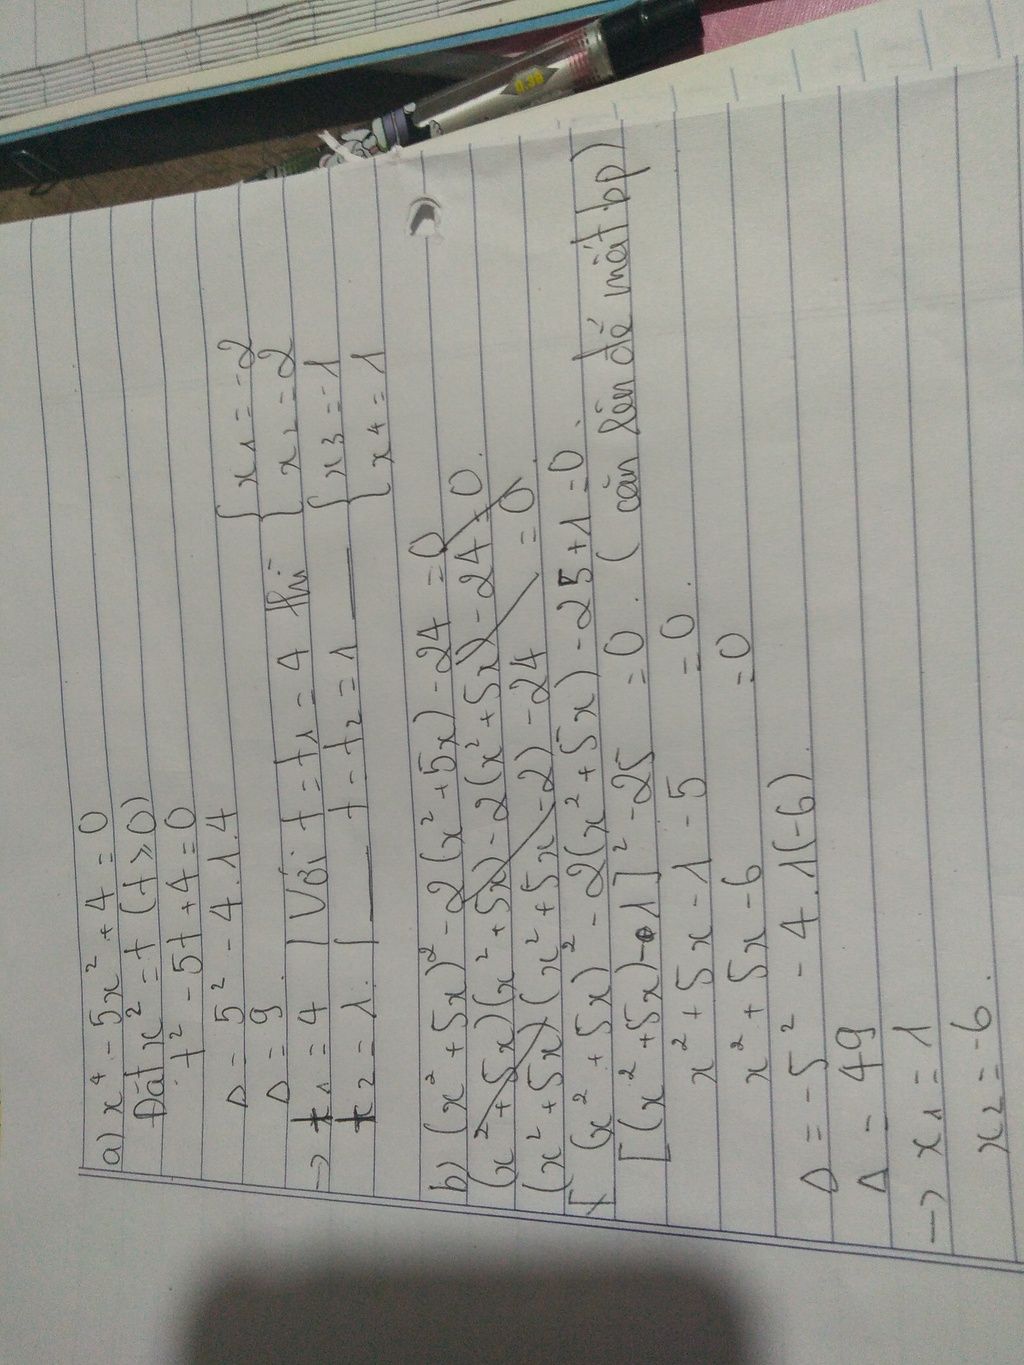 a) x⁴ - 5x² + 4 = 0
Đặt x² = t (t ≥ 0)
t² - 5t + 4 = 0
Δ = 5² - 4.1.4
Δ = 9.
→ t₁ = 4 | Với t = t₁ = 4 thì { x₁ = -2 { x₂ = 2
t₂ = 1. | —— t = t₂ = 1 —— { x₃ = -1 { x₄ = 1
b) (x² + 5x)² - 2(x² + 5x) - 24 = 0
(x² + 5x)(x² + 5x) - 2(x² + 5x) - 24 = 0.
(x² + 5x)(x² + 5x - 2) - 24 = 0.
[(x² + 5x)² - 2(x² + 5x) - 25 + 1 = 0.
[(x² + 5x) - 1]² - 25 = 0. (căn lên để mất bp)
x² + 5x - 1 - 5 = 0.
x² + 5x - 6 = 0
Δ = -5² - 4.1(-6).
Δ = 49
→ x₁ = 1
x₂ = -6.
0.38